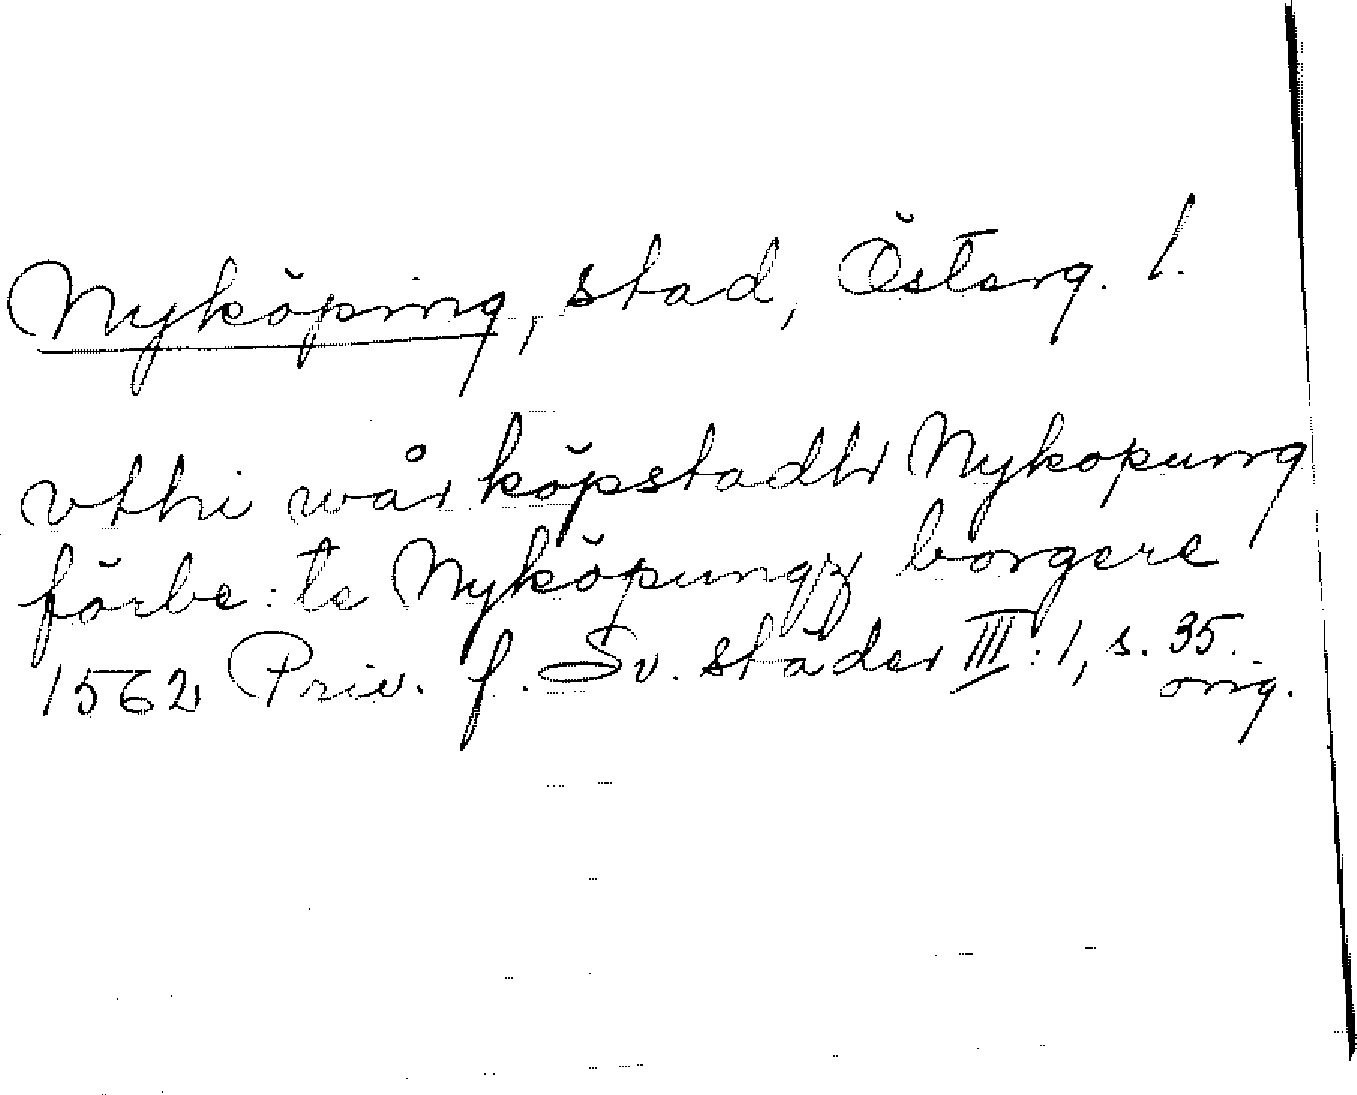 Nyköping, stad, Österg. l.
vthi wår köpstadh Nykopung
förbe:te Nyköpungz borgere
1562 Priv. f. Sv. städer III:1, s. 35.
orig.